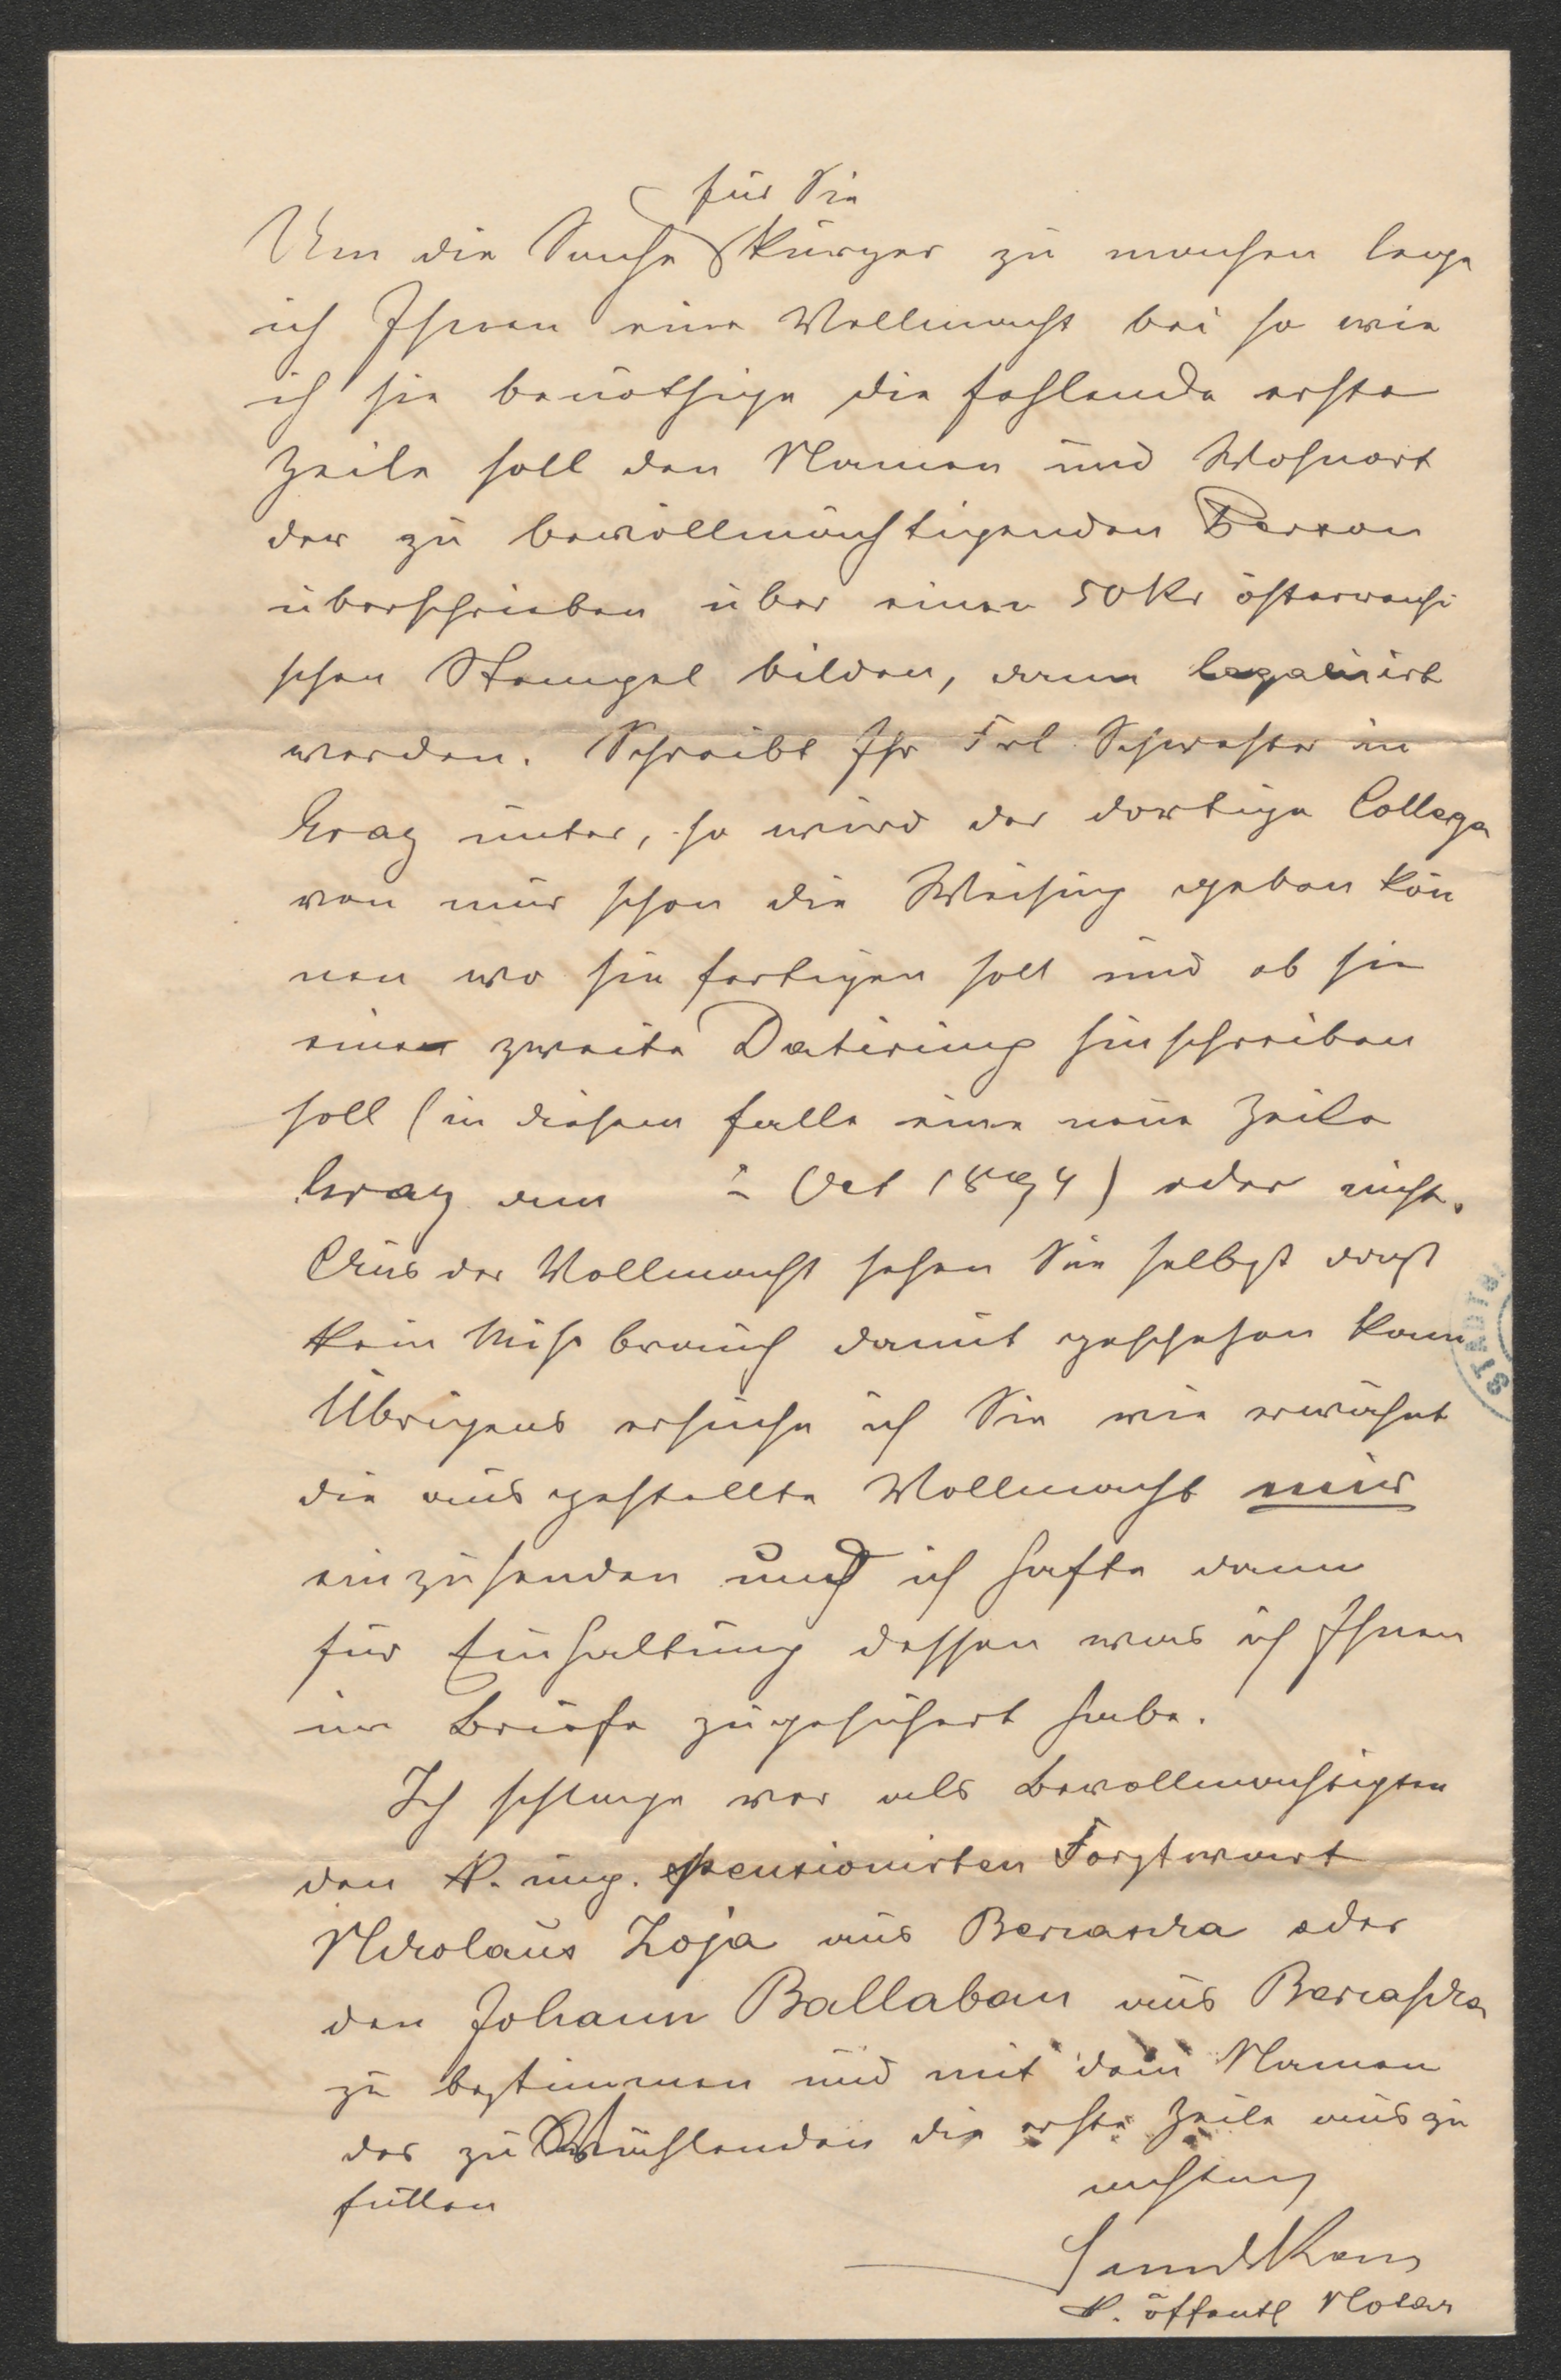 für Sie
Um die Sache kürzer zu machen lege
ich Ihnen eine Vollmacht bei so wie
ich sie benöthige die fehlende erste
Zeile soll den Namen und Wohnort
der zu bevollmächtigenden Person
überschrieben über einen 50 Kr österreichi
schen Stempel bilden, dann legalisirt
werden. Schreibt Ihr Frl Schwester in
Graz unter, so wird der dortige Collega
von mir schon die Weisung geben kön
nen wo sie fertigen soll und ob sie
eine zweite Datirung hinschreiben
soll (in diesem falle eine neue Zeile
Graz am Oct 1894) oder nicht.
Aus der Vollmacht sehen Sie selbst daß
kein Missbrauch damit geschehen kann
Übrigens ersuche ich Sie wie erwähnt
die ausgestellte Vollmacht mir
einzusenden und ich hafte dann
für Einhaltung dessen was ich Ihnen
im Briefe zugesichert habe.
Ich schlage vor als Bevollmächtigten
den k. ung. pensionirten Forstwart
Nikolaus Zoja aus Berzaska oder
den Johann Ballaban aus Berzaska
zu bestimmen und mit dem Namen
des zu Wählenden die erste Zeile auszu
füllen
achtung
k. öffentl Notar
STADT